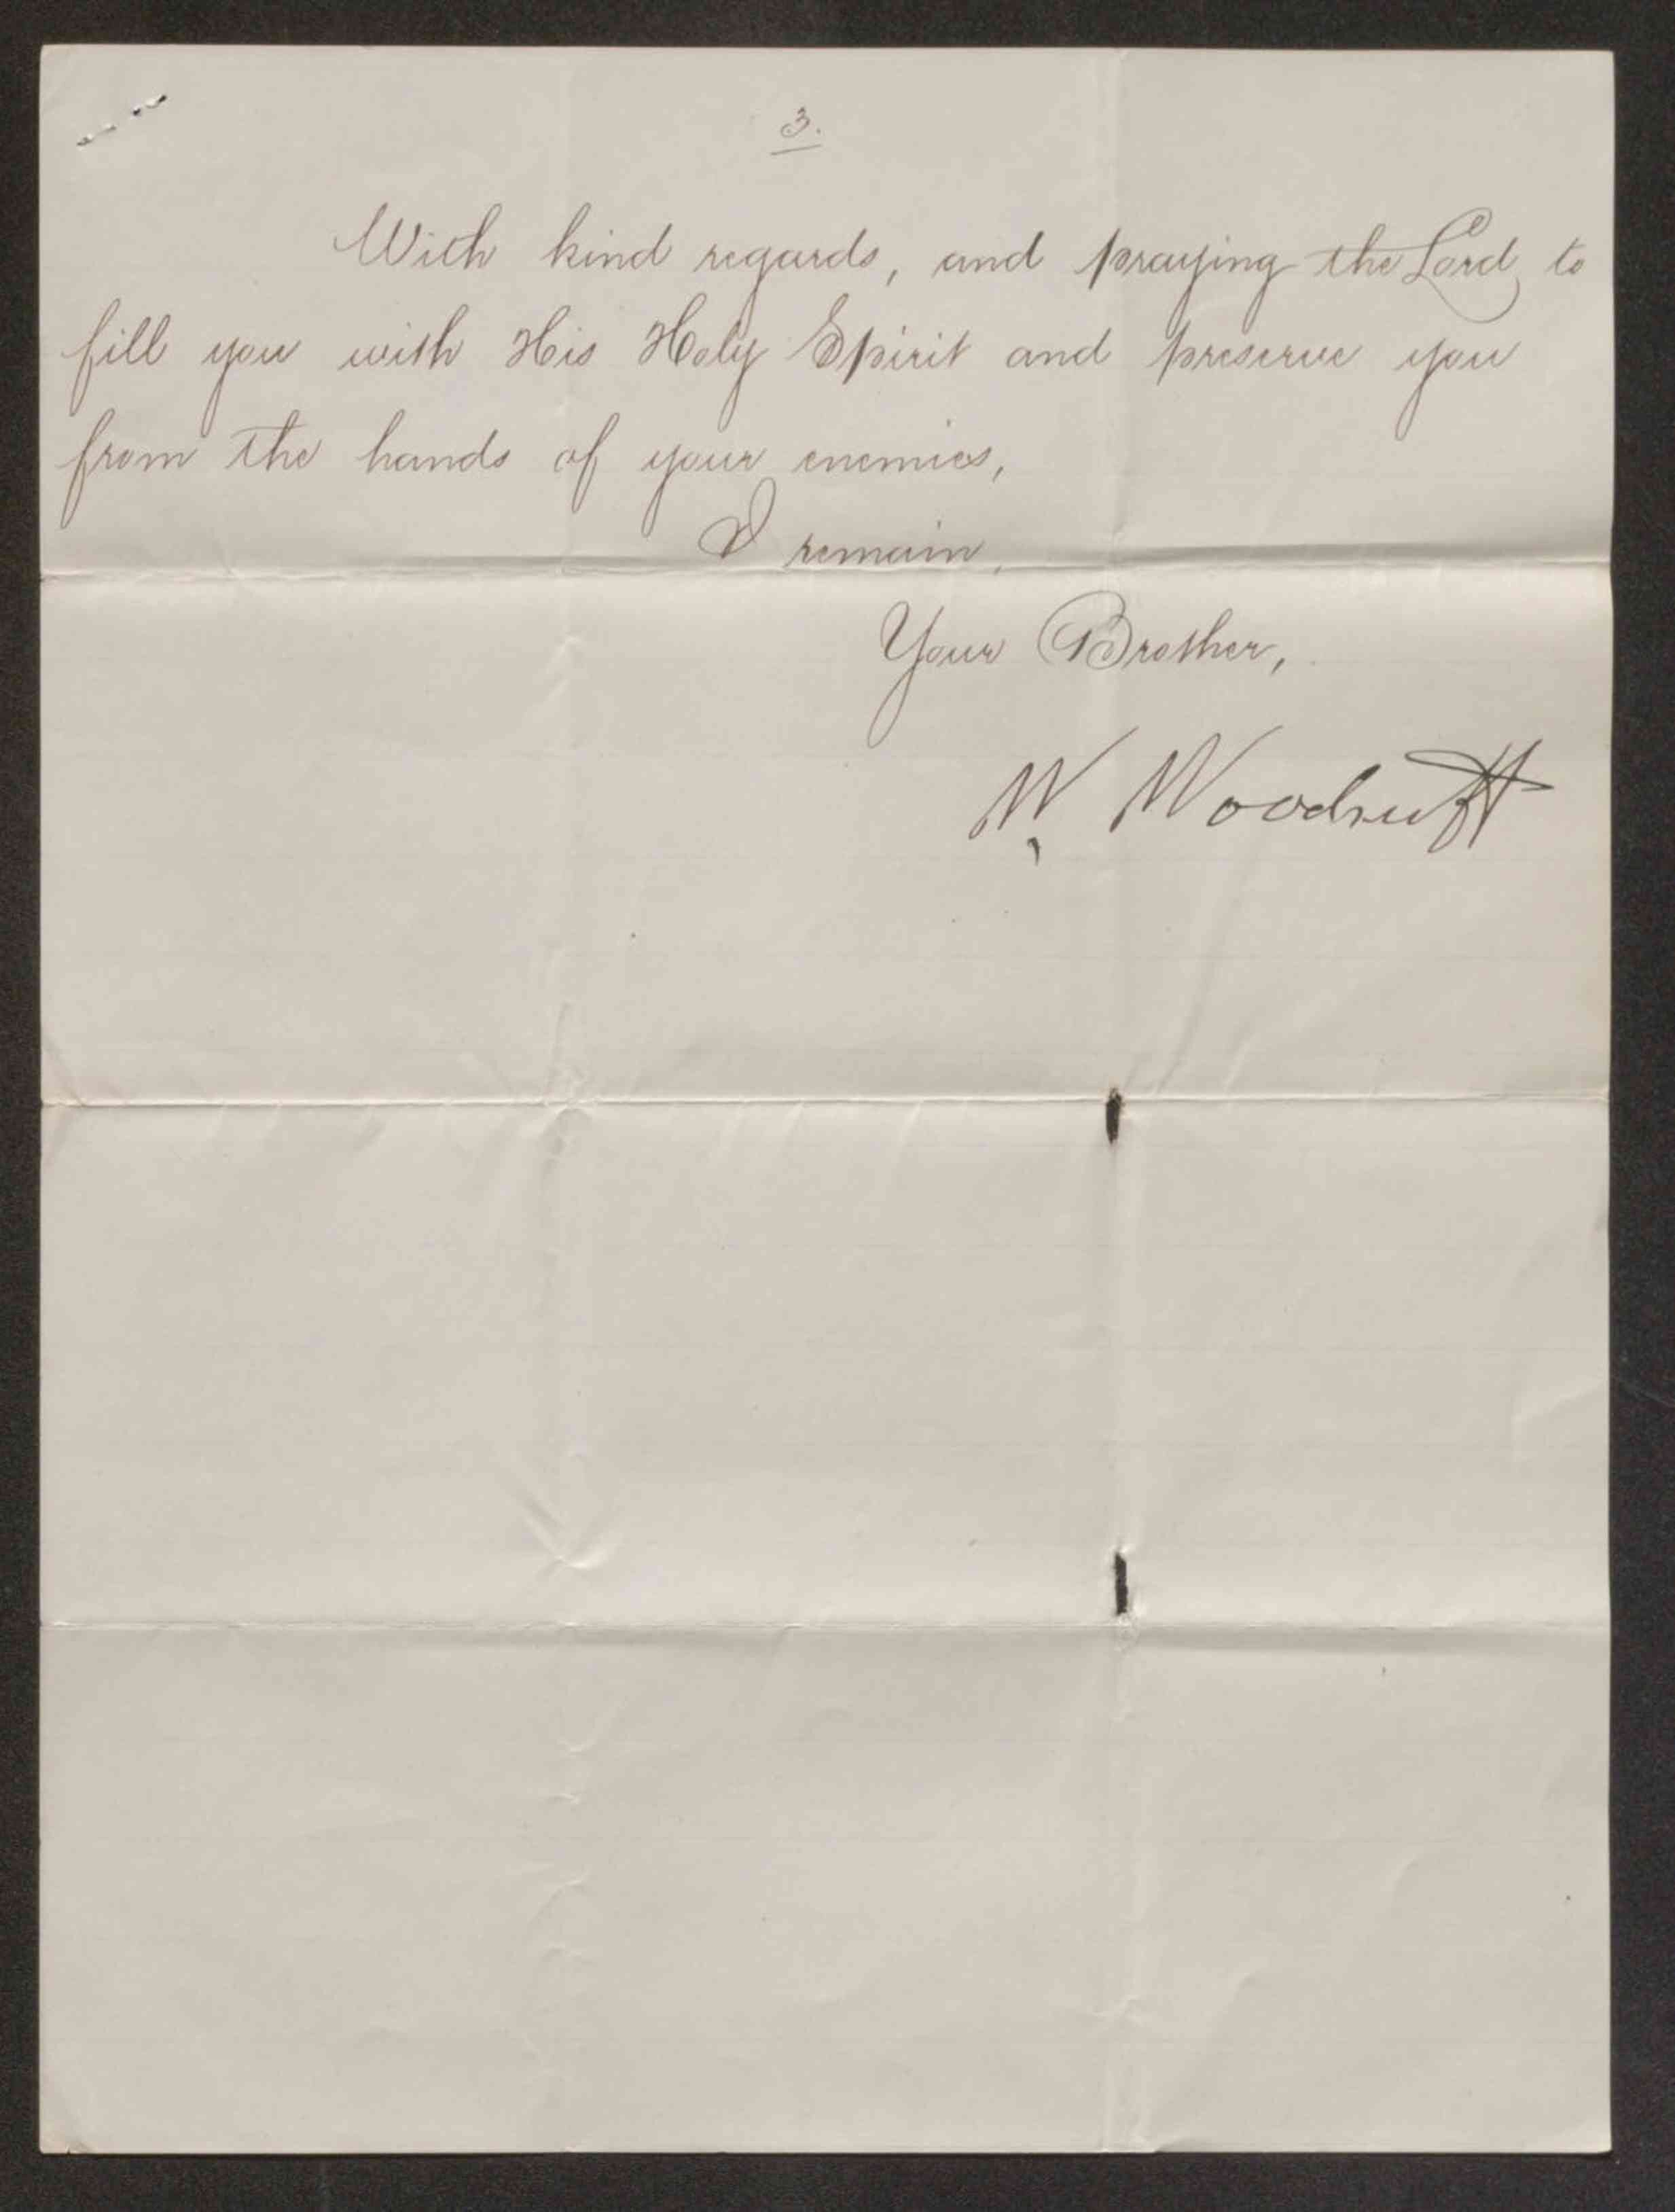 3.
With kind regards, and praying the Lord to
fill you with His Holy Spirit and preserve you
from the hands of your enemies,
I remain,
Your Brother,
W. Woodruff